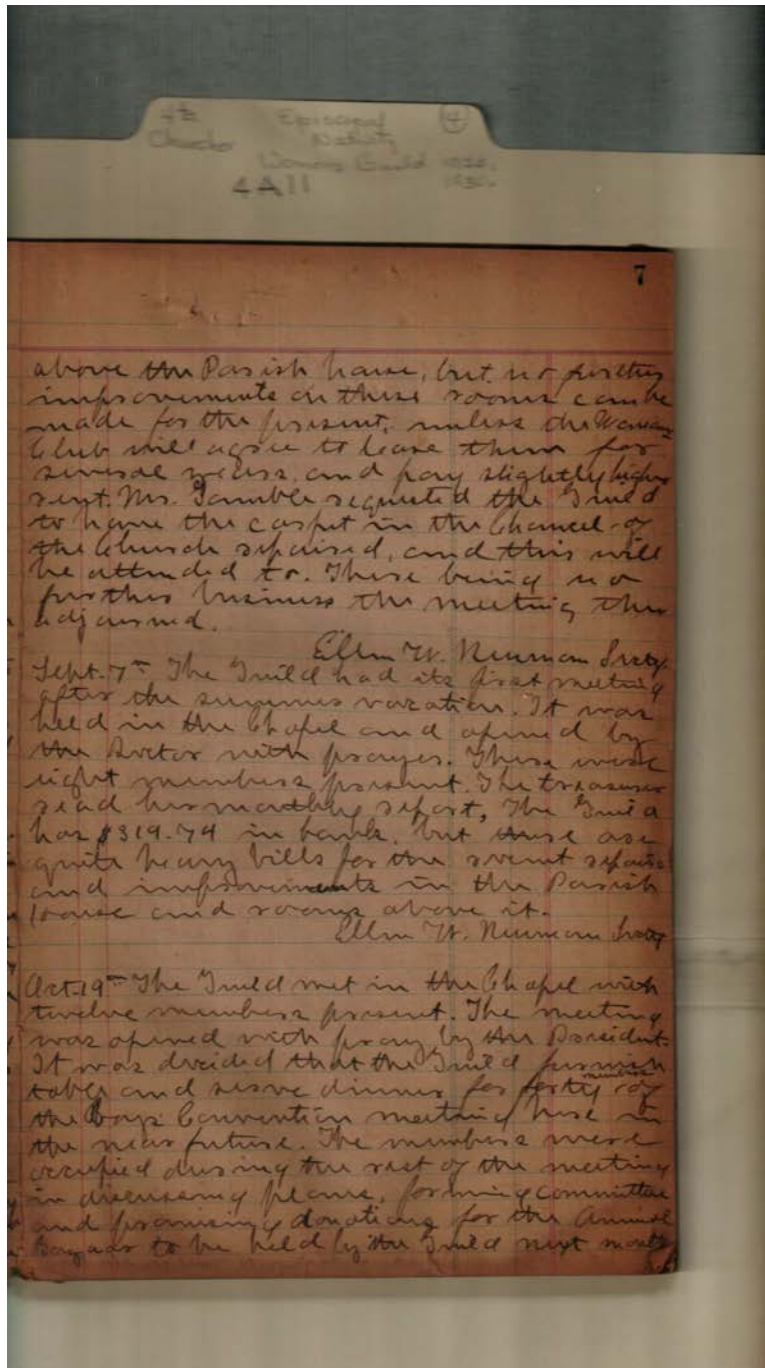 4th Episcopal 4
Church Nativity
Womens Guild
4A11
7
above the Parish house, but no further
improvements on these rooms can be
made for the present, unless the Womans
Club will agree to lease them for
several years, and pay slightly higher
rent. Mrs. Gamble requested the Guild
to have the carpet in the Chancel of
the Church repaired, and this will
be attended to. There being no
further business the meeting then
adjourned.
Ellen W. Neuman Secty.
Sept. 7th The Guild had its first meeting
after the summer vacation. It was
held in the Chapel and opened by
the Rector with prayer. There were
eight members present. The treasurer
read her monthly report, The Guild
has $319.74 in bank, but there are
quite heavy bills for the recent repairs
and improvements in the Parish
house and rooms above it.
Ellen W. Neuman Secty
Oct. 19th The Guild met in the Chapel with
twelve members present. The meeting
was opened with pray by the President.
It was decided that the Guild furnish
tables and serve dinner for forty members of
the Boys Convention meeting here in
the near future. The members were
occupied during the rest of the meeting
in discussing plans, forming committee
and promising donations for the Annual
Bazaar to be held by the Guild next month